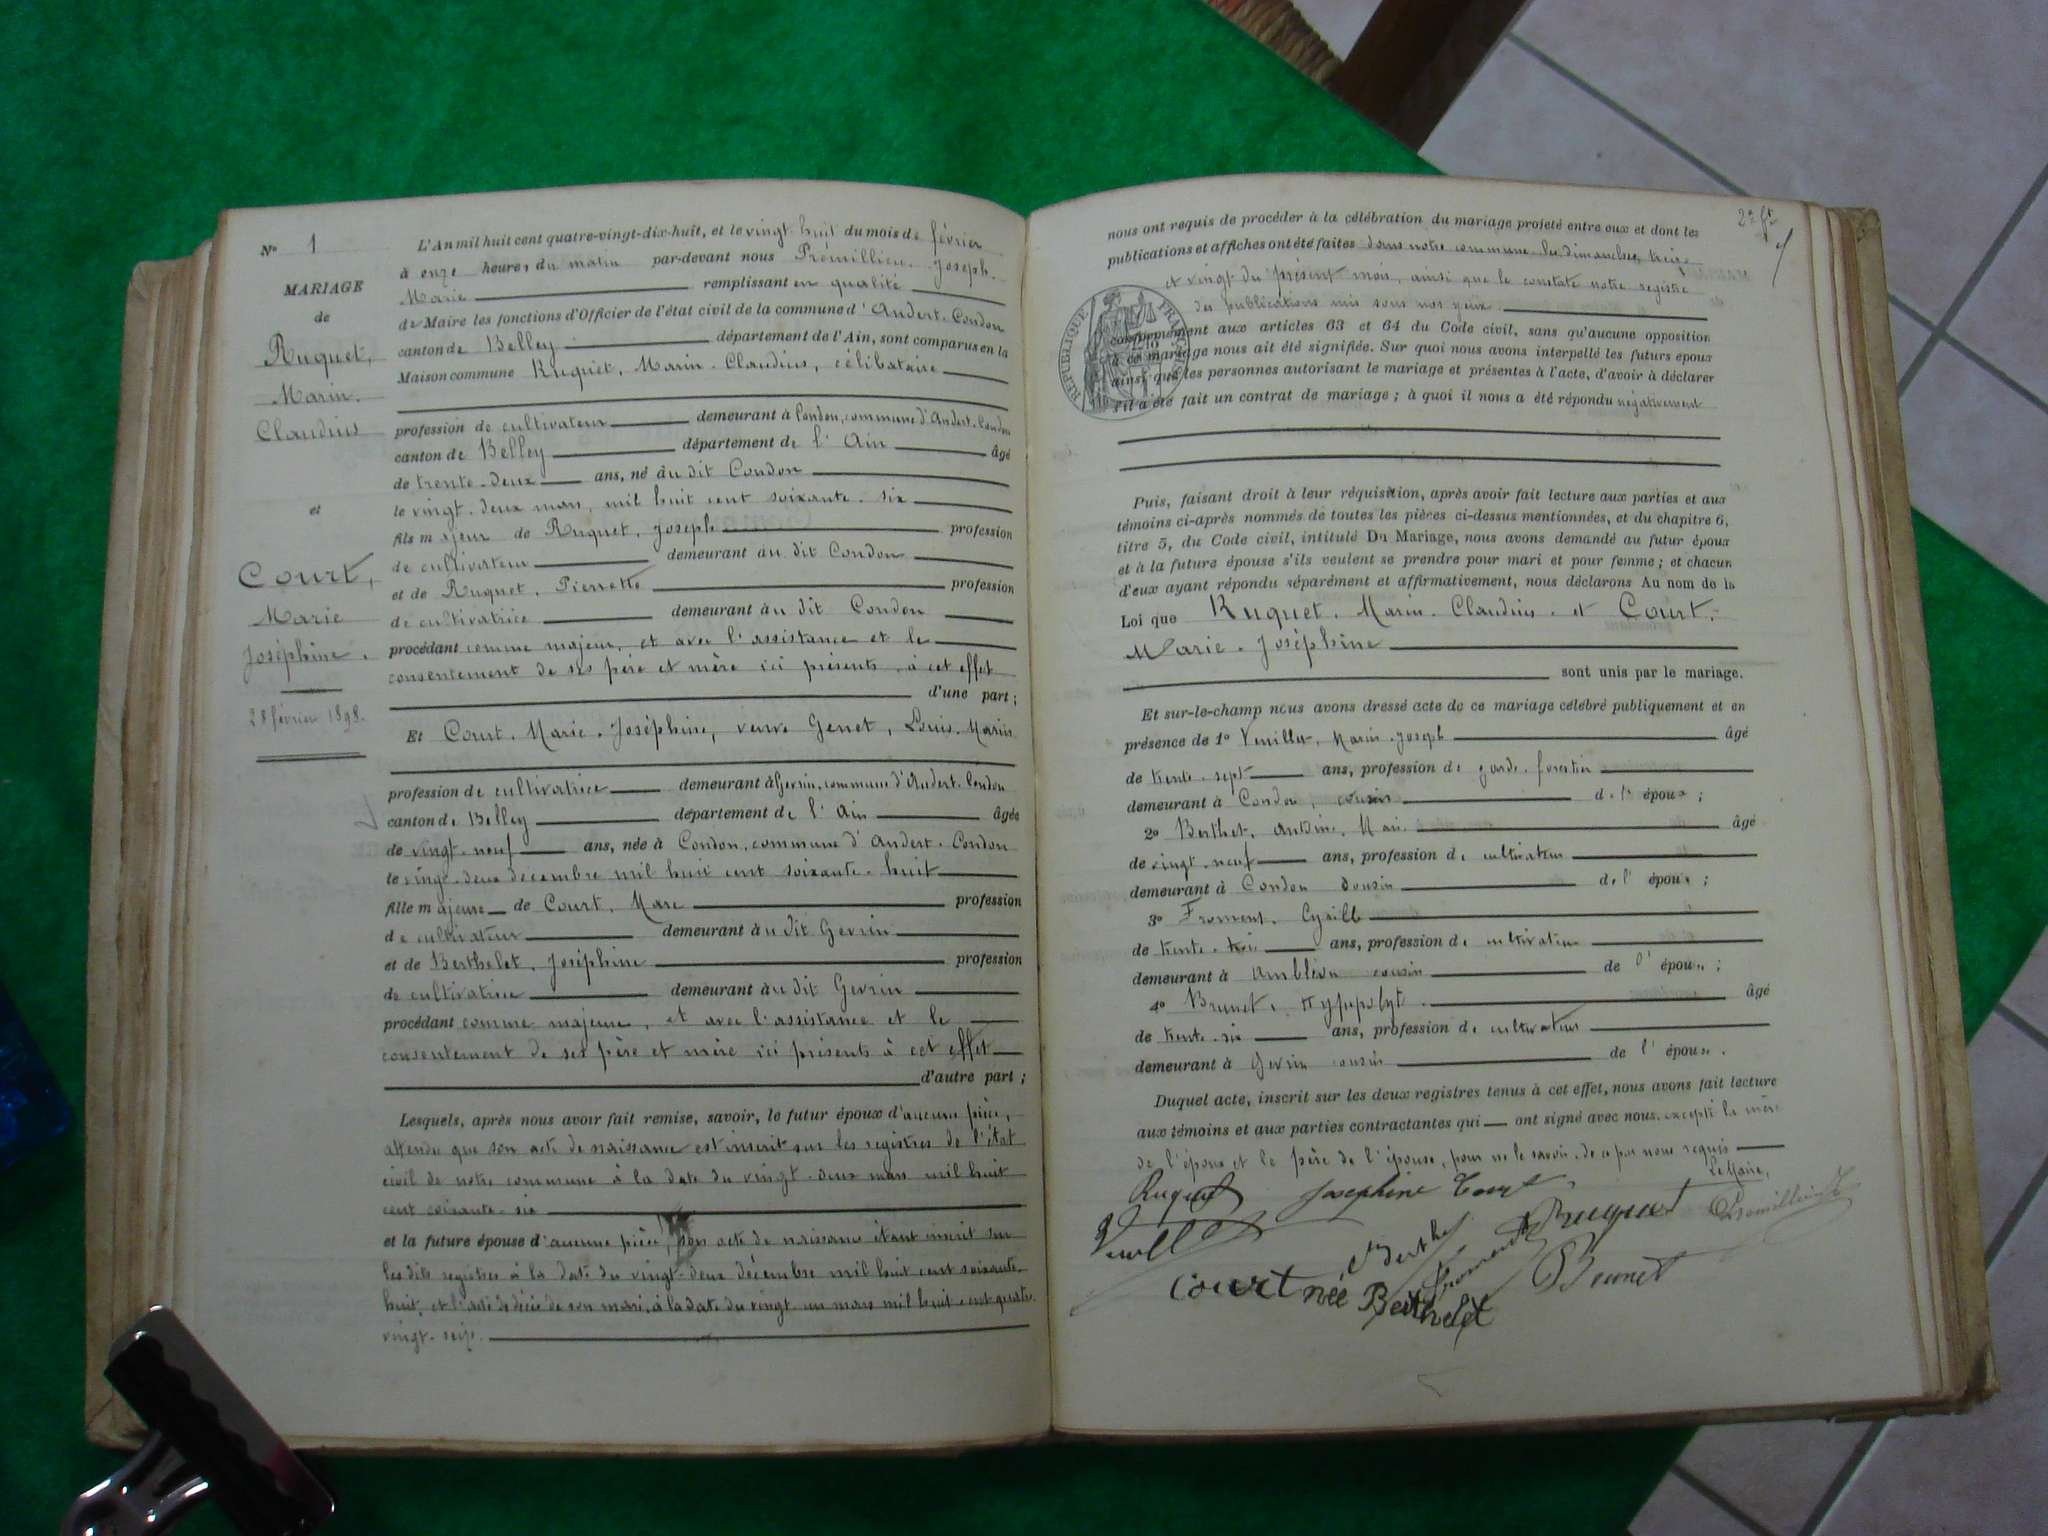 N° 1
MARIAGE
de
Ruquet,
Marin.
Claudius
et
Court,
Marie
Joséphine.
28 février 1898.
L'An mil huit cent quatre-vingt-dix-huit, et le vingt huit du mois de février
à onze heures du matin par-devant nous Prémillieu. Joseph.
Marie remplissant en qualité
de Maire les fonctions d'Officier de l'état civil de la commune d'Andert-Condon
canton de Belley département de l'Ain, sont comparus en la
Maison commune Ruquet, Marin. Claudius, célibataire
profession de cultivateur demeurant à Condon, commune d'Andert-Condon
canton de Belley département de l'Ain âgé
de trente-deux ans, né au dit Condon
le vingt-deux mars, mil huit cent soixante-six
fils majeur de Ruquet, Joseph profession
de cultivateur demeurant au dit Condon
et de Ruquet. Pierrette profession
de cultivatrice demeurant au dit Condon
procédant comme majeur, et avec l'assistance et le
consentement de ses père et mère ici présents, à cet effet
d'une part;
Et Court. Marie. Joséphine, veuve Genet, Louis. Marin
profession de cultivatrice demeurant à Gevrin, commune d'Andert-Condon
canton de Belley département de l'Ain âgée
de vingt-neuf ans, née à Condon, commune d'Andert-Condon
le vingt-deux décembre mil huit cent soixante-huit
fille majeure de Court, Marc profession
de cultivateur demeurant au dit Gevrin
et de Berthelet, Joséphine profession
de cultivatrice demeurant au dit Gevrin
procédant comme majeure, et avec l'assistance et le
consentement de ses père et mère ici présents à cet effet
d'autre part;
Lesquels, après nous avoir fait remise, savoir, le futur époux d'aucune pièce,
attendu que son acte de naissance est inscrit sur les registres de l'état
civil de notre commune à la date du vingt-deux mars mil huit
cent soixante-six
et la future épouse d'aucune pièce, son acte de naissance étant inscrit sur
les dits registres à la date du vingt-deux décembre mil huit cent soixante-
huit, et l'acte de décès de son mari, à la date du vingt-un mars mil huit cent quatre-
vingt-seize.
nous ont requis de procéder à la célébration du mariage projeté entre eux et dont les
publications et affiches ont été faites dans notre commune les dimanches, treize
et vingt du présent mois, ainsi que le constate notre registre
des publications mis sous nos yeux.
RÉPUBLIQUE
conformément aux articles 63 et 64 du Code civil, sans qu'aucune opposition
à ce mariage nous ait été signifiée. Sur quoi nous avons interpellé les futurs époux
ainsi que les personnes autorisant le mariage et présentes à l'acte, d'avoir à déclarer
s'il a été fait un contrat de mariage; à quoi il nous a été répondu négativement
Puis, faisant droit à leur réquisition, après avoir fait lecture aux parties et aux
témoins ci-après nommés de toutes les pièces ci-dessus mentionnées, et du chapitre 6,
titre 5, du Code civil, intitulé Du Mariage, nous avons demandé au futur époux
et à la future épouse s'ils veulent se prendre pour mari et pour femme; et chacun
d'eux ayant répondu séparément et affirmativement, nous déclarons Au nom de la
Loi que Ruquet. Marin. Claudius. et Court.
Marie. Joséphine
sont unis par le mariage.
Et sur-le-champ nous avons dressé acte de ce mariage célébré publiquement et en
présence de 1° Veuillet, Marin. Joseph âgé
de trente-sept ans, profession de garde-forestier
demeurant à Condon, cousin de l'époux;
2° Berthet, Marie. âgé
de vingt-neuf ans, profession de cultivateur
demeurant à Condon cousin de l'époux;
3° Froment.
de trente-trois ans, profession de cultivateur
demeurant à Ambléon cousin de l'époux;
4° Brunet, Hyppolyte. âgé
de trente-six ans, profession de cultivateur
demeurant à Gevrin cousin de l'épouse.
Duquel acte, inscrit sur les deux registres tenus à cet effet, nous avons fait lecture
aux témoins et aux parties contractantes qui ont signé avec nous, excepté la mère
de l'époux et le père de l'épouse, pour ne le savoir, de ce par nous requis
Le Maire,
Ruquet Josephine Court
Ruquet Prémillieu
Veuillet
Berthet Froment Brunet
Court née Berthelet